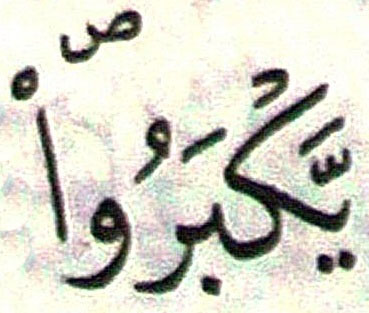 يَّكْبَرُواْ ص